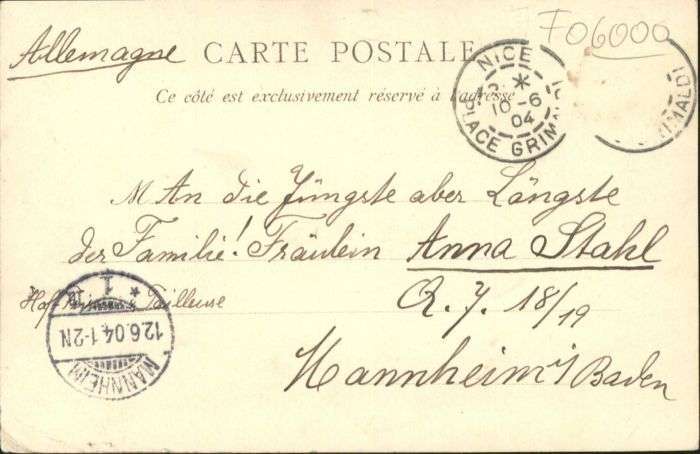 Allemagne CARTE POSTALE F06000
Ce côté est exclusivement réservé à l'adresse
NICE
*
10-6
04
PLACE GRIMALDI
IMALDI
An die Jüngste aber Längste
der Familie! Fräulein Anna Stahl
Tailleuse
Q. 7. 18/19
Mannheim i/Baden
* 1
12.6.04.1-2N
MANNHEIM